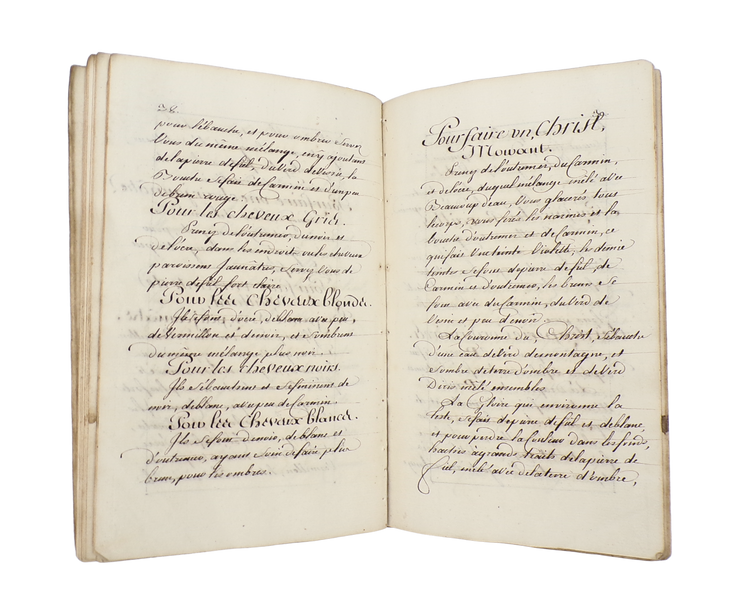 28.
pour l'ébauche, et pour ombrer servez
Vous du même mélange, en y ajoutant
de la pierre de fiel, du Verd de Vessie, la
se fait de Carmin et d'un peu
de brun rouge.
Pour les cheveux Gris.
Prenez de l'outremer, du noir et
de l'ocre, dans les endroits ou les cheveux
paroissent Jaunâtres, servez Vous de
pierre de fiel fort claire.
Pour les Cheveux blonds.
Ils se font d'ocre, de blanc, un peu,
de Vermillon et de noir, et s'ombrent
du même mélange plus noir.
Pour les cheveux noirs.
Ils s'ébauchent et se finissent de
noir, de blanc, un peu de Carmin.
Pour les Cheveux blancs.
Ils se font de noir, de blanc et
d'outremer, ayant soin de faire plus
brun, pour les ombres.
Pour faire un, Christ,
Mourant.
Prenez de l'outremer, du Carmin,
et de l'ocre, duquel mélange mêlé avec
Beaucoup d'eau, Vous glacerez, tout
le corps, vous ferez les narines et la
bouche d'outremer et de Carmin, ce
qui fait Une teinte Violette, les demie
teintes se font de pierre de fiel, de
Carmin et d'outremer, les bruns se
font avec du Carmin, du Verd de
Vessie et peu de noir.
La Couronne du, Christ, s'ébauche
d'une eau de Verd de montagne, et
s'ombre de terre d'ombre et de Verd
D'iris mêlé ensembles.
La Gloire qui environne la
teste, se fait de pierre de fiel et de blanc,
et pour perdre la Couleur dans les fonds,
de la pierre de
fiel, mêlé avec de la terre d'ombre,